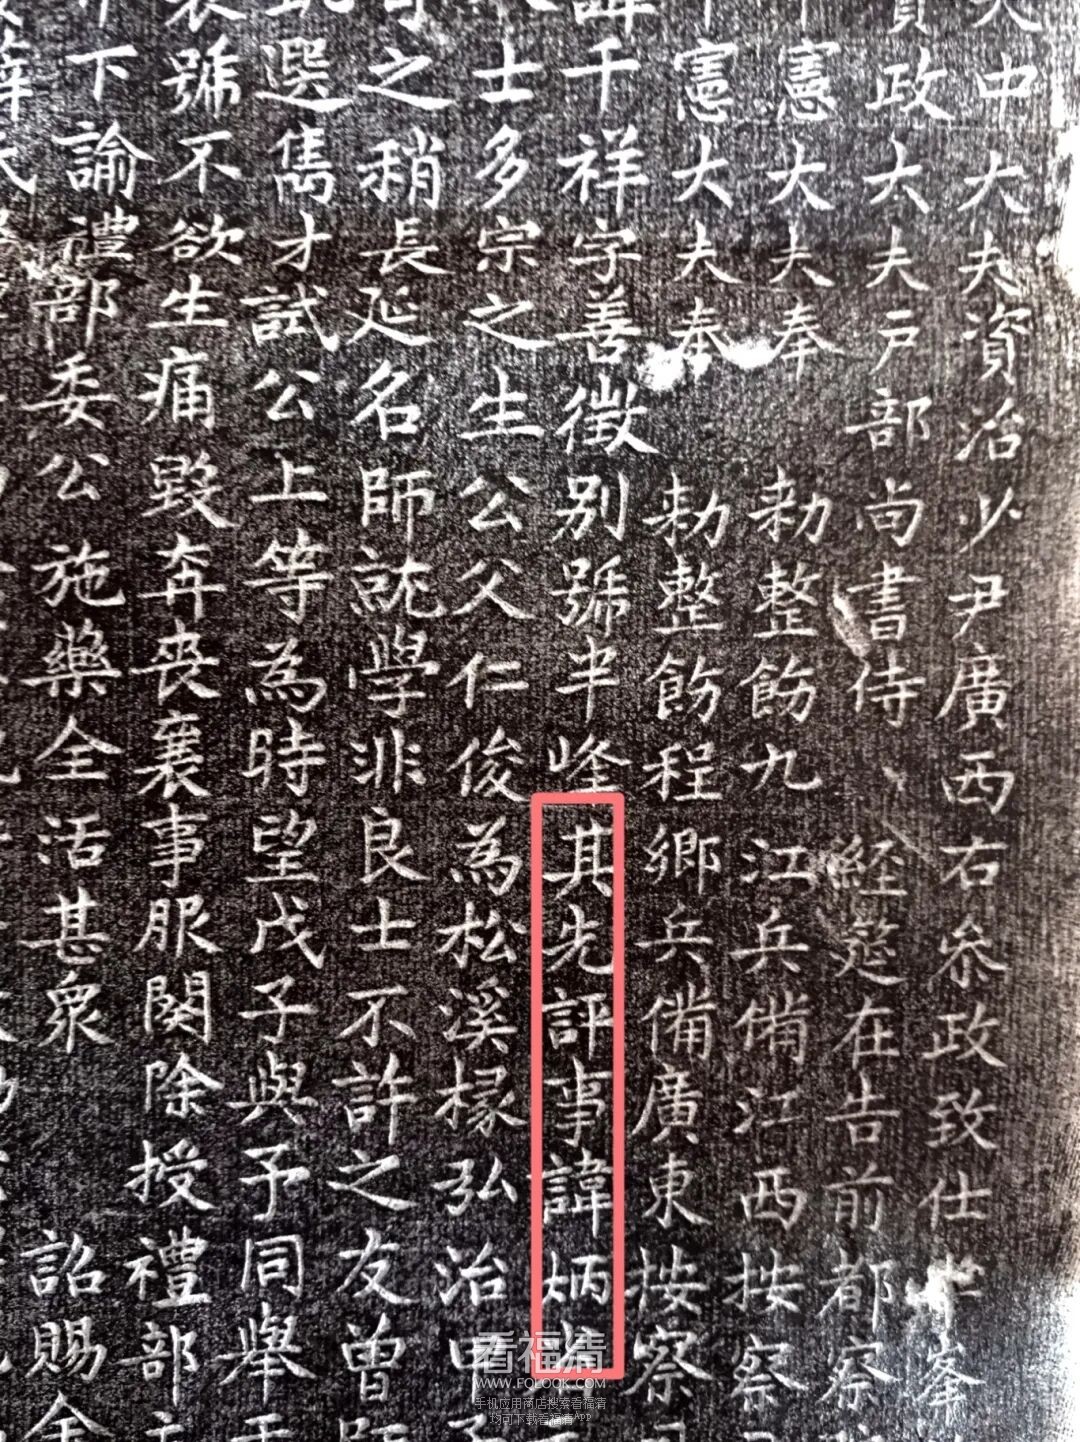 大中大夫資治少尹廣西右叅政致仕
資政大夫戶部尚書侍 經筵在告前都察
憲大夫奉 勑整飭九江兵備江西按察
憲大夫奉 勑整飭程鄉兵備廣東按察司
諱千祥字善徵別號半峰其先評事諱炳
士多宗之生公父仁俊為松溪掾弘治
之稍長延名師就學非良士不許之友曾師
選雋才試公上等為時望戊子與予同舉于
號不欲生痛毀奔喪襄事服闋除授禮部
下諭禮部委公施藥全活甚衆 詔賜金
看福清
WWW.FOLOOK.COM
手机应用商店搜索看福清
均可下载看福清App